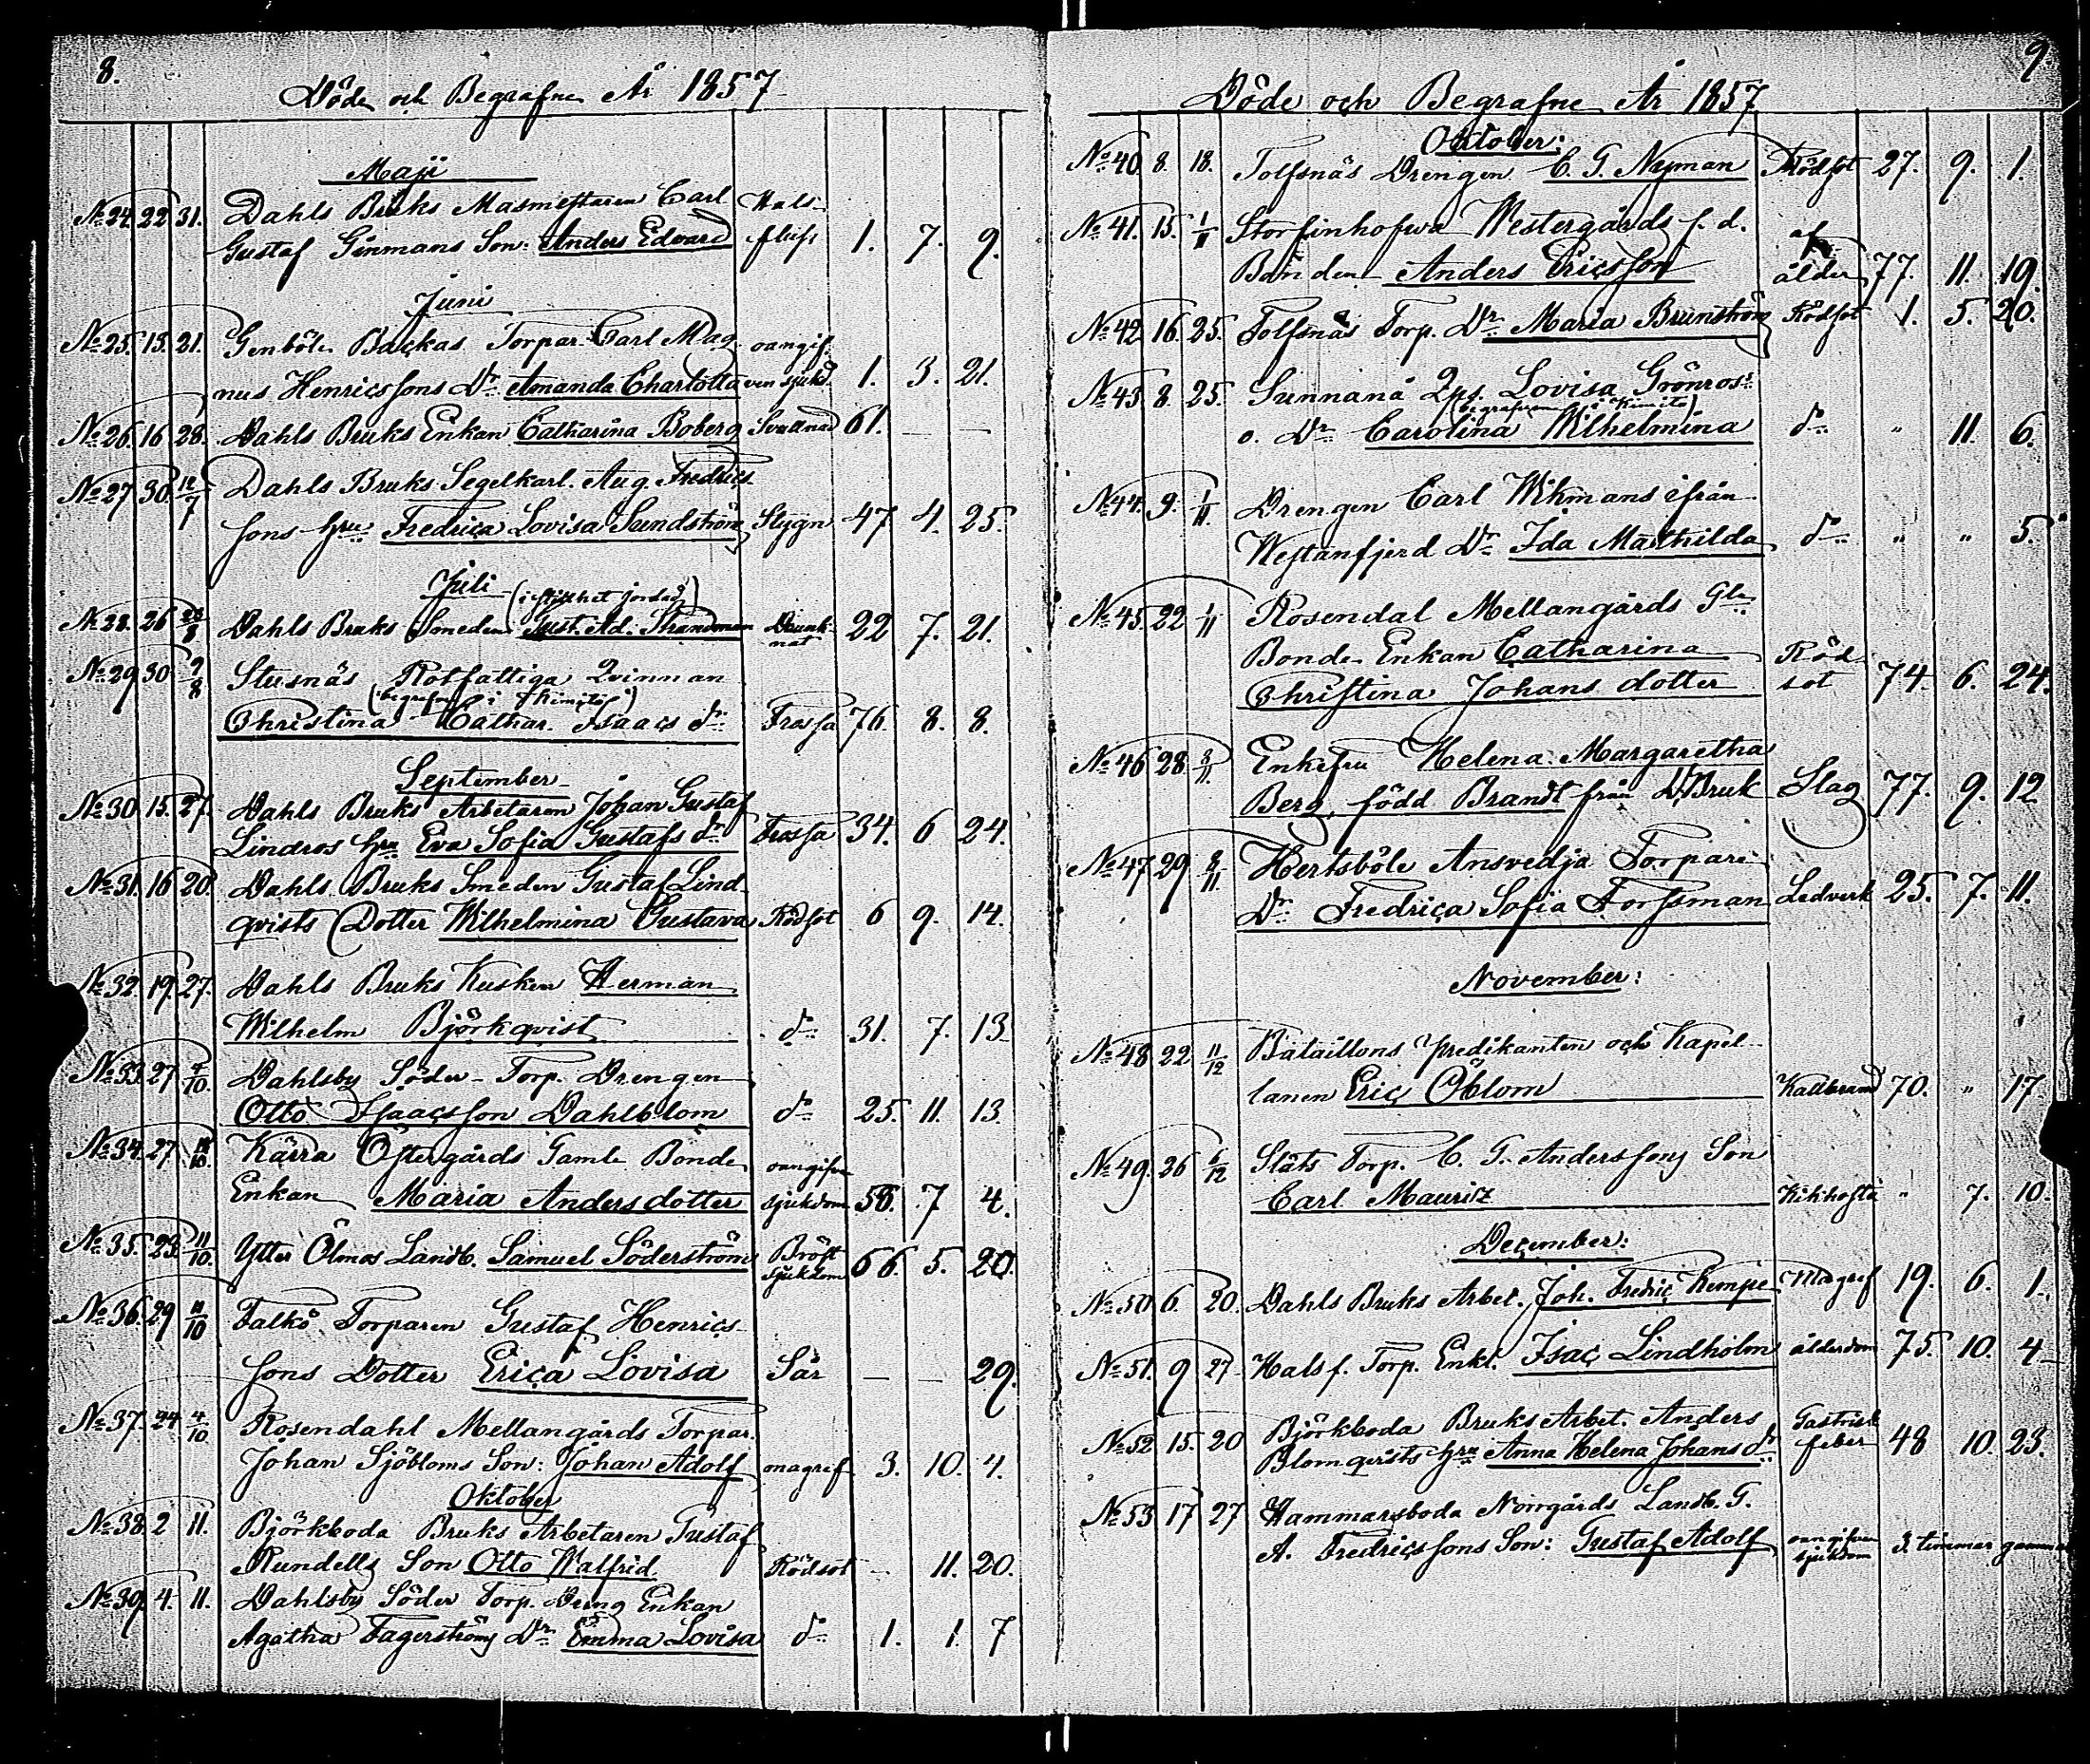 8.
Döde och Begrafne År 1857
Maji
No 24. 22 31. Dahls Bruks Masmestaren Carl Hals-
Gustaf Ginmans Son: Anders Edvard fluss 1. 7. 9.
Juni
No 25. 15. 21. Genböle Backas Torpar. Carl Mag- oangif-
nus Henricssons Dr. Amanda Charlotta ven sjukd. 1. 3. 21.
No 26. 16 28. Dahls Bruks Enkan Catharina Boberg Svullnad 61. — —
No 27 30. 12/7 Dahls Bruks Segelkarl. Aug. Fredrics-
sons hru Fredrica Lovisa Sundström Stygn 47 4. 25.
Juli (i stillhet jordad)
No 28. 26 Dahls Bruks Smeden Gust. Ad. Strandman Drunk- 22 7. 21.
nat
No 29 30 2/8 Stusnäs Rotfattiga Qvinnan
(begrafven i Kimito)
Christina Cathar. Isaacs dr. Frossa 76. 8. 8.
September
No 30. 15. 27. Dahls Bruks Arbetaren Johan Gustaf
Lindros hru Eva Sofia Gustafs dr Frossa 34. 6 24.
No 31. 16 20. Dahls Bruks Smeden Gustaf Lind-
qvists Dotter Wilhelmina Gustava Rödsot 6 9. 14.
No 32 19. 27. Dahls Bruks Kusken Herman
Wilhelm Björkqvist do 31. 7. 13.
No 33. 27 4/10. Dahlsby Söder Torp. Drengen
Otto Isaacsson Dahlblom do 25. 11. 13.
No 34. 27 Kärra Östergårds Gamle Bonde oangifven
Enkan Maria Anders dotter sjukdom 58. 7 4.
No 35. 23. 11/10. Ytter Ölmos Landb. Samuel Söderström Bröst 66. 5. 20.
sjukdom
No 36. 29 11/10 Falkö Torparen Gustaf Henrics-
sons Dotter Erica Lovisa Sår — — 29.
No 37. 24 4/10 Rosendahl Mellangårds Torpar.
Johan Sjöbloms Son: Johan Adolf magref 3. 10. 4.
Oktober
No 38. 2 11. Björkboda Bruks Arbetaren Gustaf
Rundells Son Otto Walfrid. Rödsot — 11. 20.
No 39. 4. 11. Dahlsby Söder Torp. Dreng Enkan
Agatha Fagerströms Dr. Emma Lovisa do 1. 1. 7
9
Döde och Begrafne År 1857
Oktober:
No 40. 8. 18. Tolfsnäs Drengen C. G. Nyman Rödsot 27. 9. 1.
No 41. 15. 1/11 Storfinhofva Westergårds f. d. af
Bonden Anders Ericsson ålder 77. 11. 19.
No 42 16. 25. Tolfsnäs Torp. Dr. Maria Brunström Rödsot 1. 5. 20.
No 43. 8. 25. Sunnanå Qps. Lovisa Grönros:
(begrafven i Kimito)
o. Dr. Carolina Wilhelmina do " 11 6.
No 44. 9. 1/11. Drengen Carl Wikmans ifrån
Westanfjerd Dr. Ida Mathilda do " " 5.
No 45. 22 1/11 Rosendal Mellangårds Gle
Bonde Enkan Catharina Röd-
Christina Johans dotter sot 74. 6. 24.
No 46 28 8/11. Enkefru Helena Margaretha
Berg, född Brandt från D. Bruk Slag 77. 9. 12
No 47 29 8/11. Hertsböle Ansvedja Torpare
Dr. Fredrica Sofia Forssman Ledverk 25. 7. 11.
November:
No 48 22 11/12 Bataillons predikanten och Kapel-
lanen Eric Öblom Kallbrand 70. " 17.
No 49. 26 6/12 Släts Torp. C. G. Anderssons Son
Carl Mauritz Kikhosta " 7. 10.
December:
No 50. 6. 20. Dahls Bruks Arbet. Joh. Fredric Kempe Magref 19. 6. 1.
No 51. 9 27 Hals f. Torp. Enkl. Isac Lindholm ålderdom 75. 10. 4
No 52 15. 20 Björkboda Bruks Arbet. Anders Gastrisk
Blomqvists hru Anna Helena Johans dr. feber 48 10. 23.
No 53 17 27 Hammarsboda Norrgårds Landb. G.
A. Fredricssons Son: Gustaf Adolf oangifven 3. timmar gammal
sjukdom